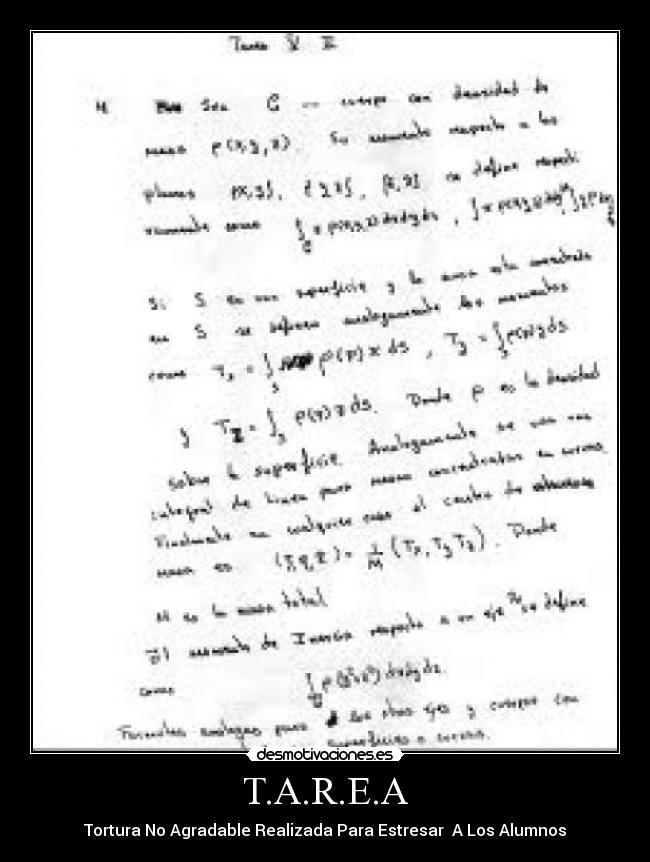 Tarea V II
Sea C cuerpo con densidad de
masa ρ(x,y,z). Su momento respecto a los
planos {x,y}, {y,z}, {z,x} se define respecti
vamente como ∫ z ρ(x,y,z) dxdydz,
Si S es una superficie y la masa esta concentrada
en S se definen analogamente los momentos
como Tx = ∫s ρ(p) x ds, Ty = ∫s ρ(p) y ds
y Tz = ∫s ρ(p) z ds. Donde ρ es la densidad
sobre la superficie. Analogamente se usa una
integral de linea para masas concentradas en curvas.
Finalmente en cualquier caso el centro de
masa es = 1/M (Tx, Ty, Tz). Donde
M es la masa total
momento de Inercia respecto a un eje se define
como ∫ ρ(y²+z²) dxdydz.
analogas para los otros ejes y cuerpos con
superficies o curvas.
desmotivaciones.es
T.A.R.E.A
Tortura No Agradable Realizada Para Estresar A Los Alumnos